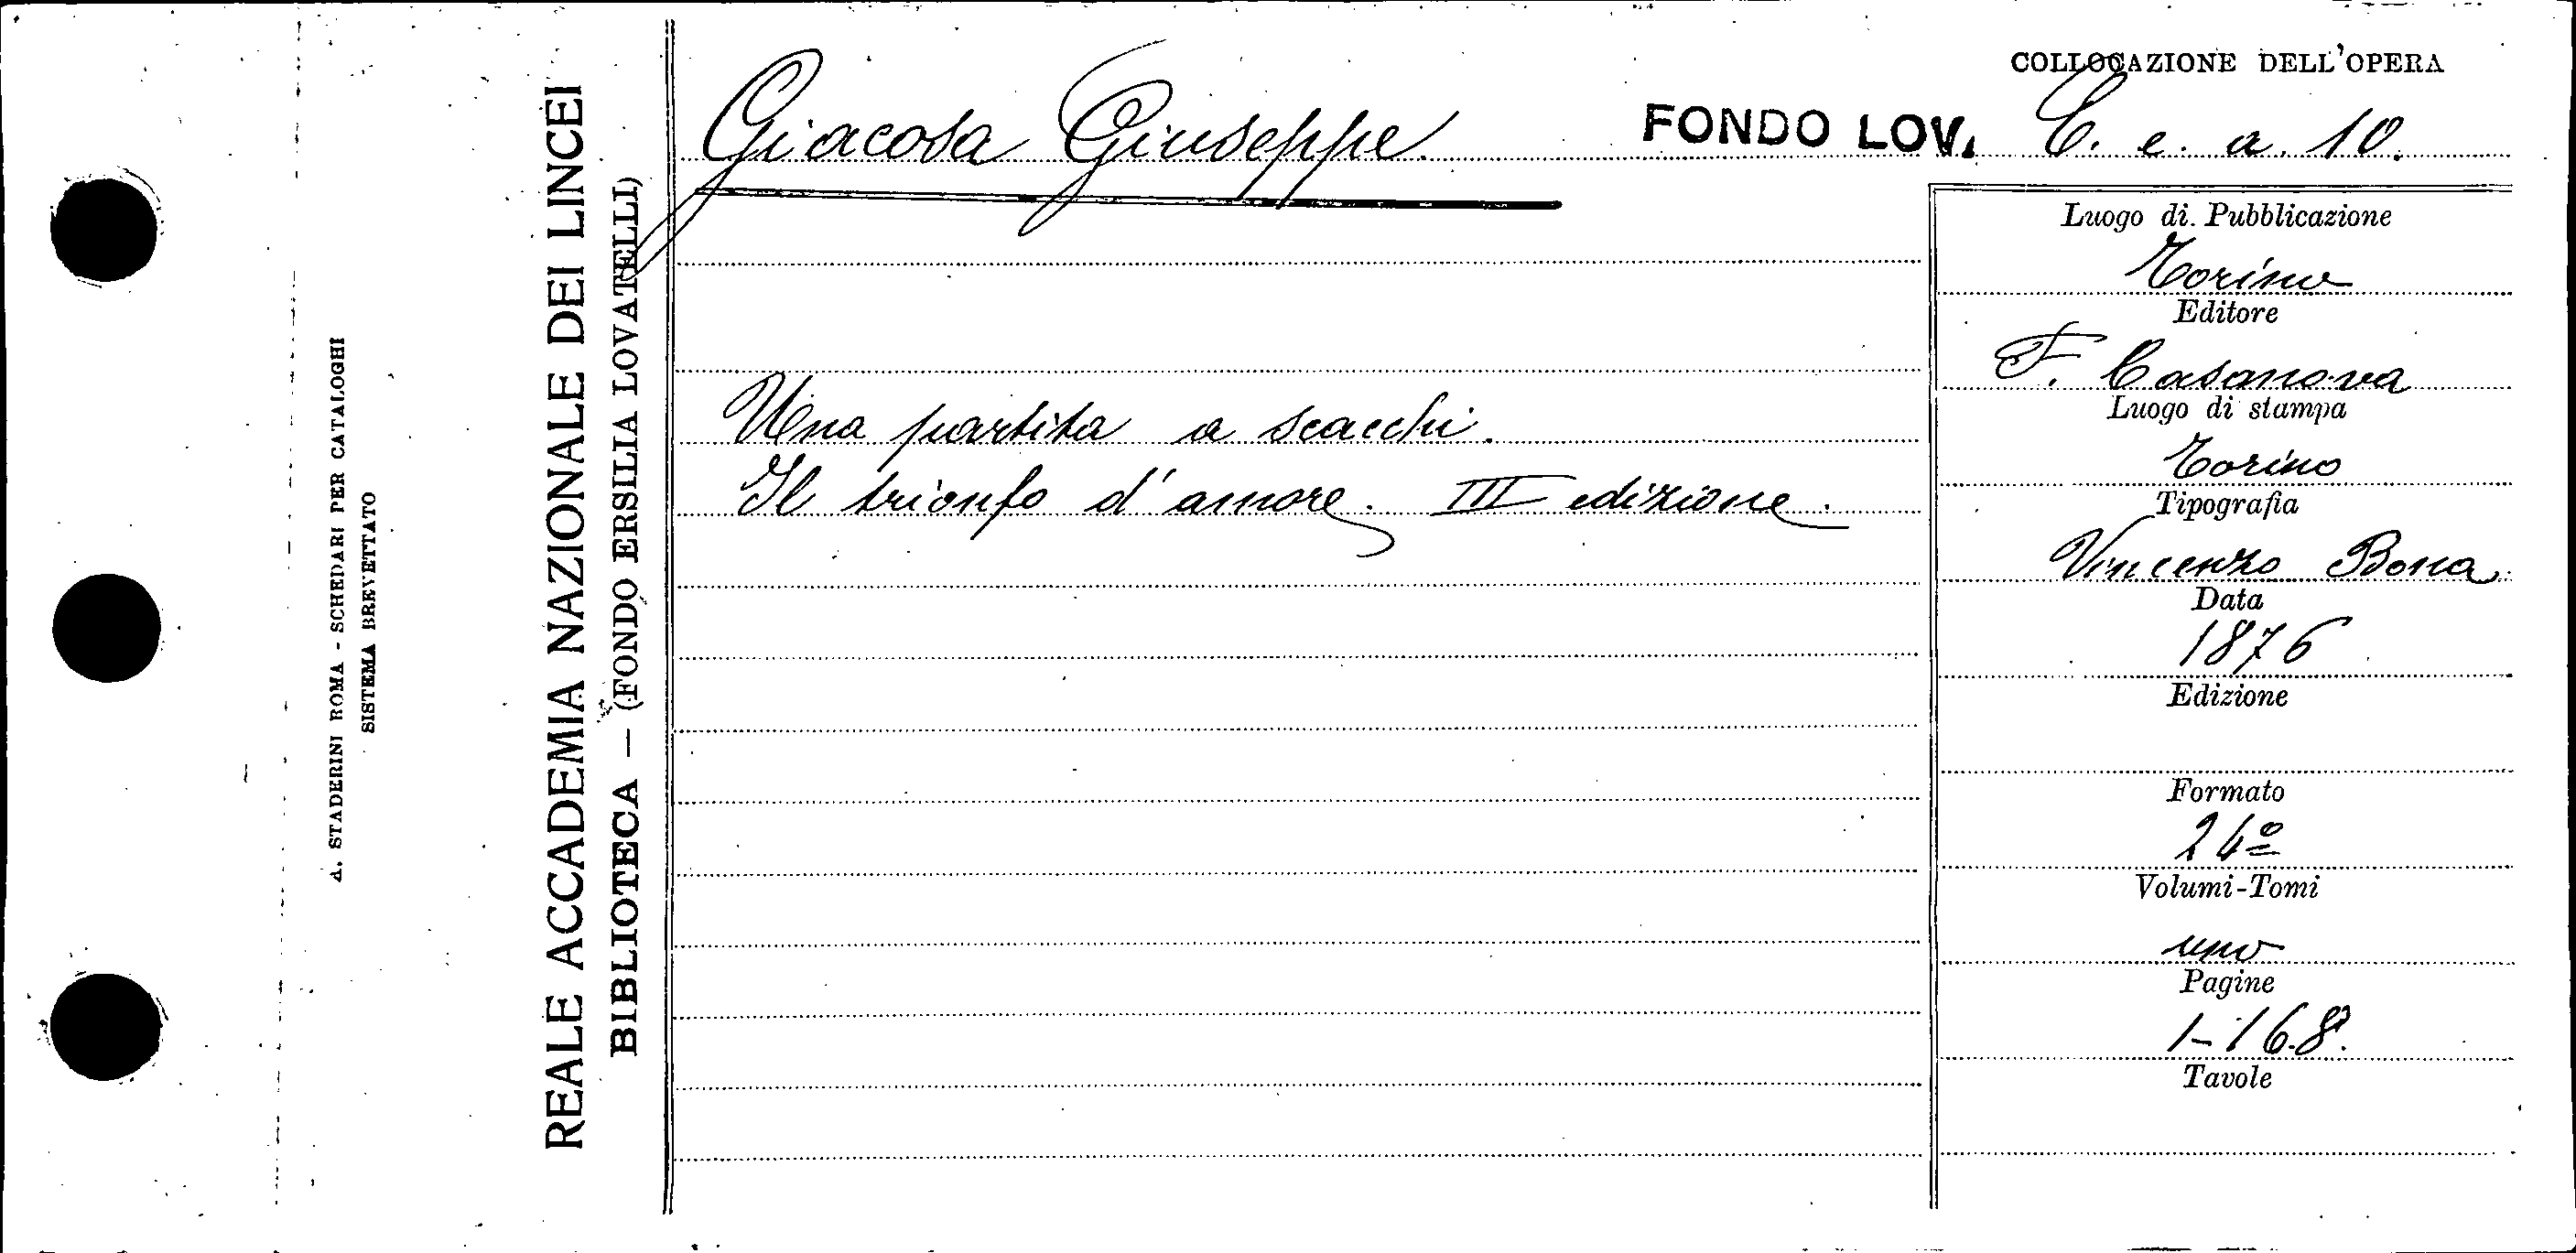 COLLOCAZIONE DELL'OPERA
Giacosa Giuseppe.
FONDO LOV. C. e. a. 10.
Una partita a scacchi.
Il trionfo d'amore. III edizione.
Luogo di Pubblicazione
Torino
Editore
F. Casanova
Luogo di stampa
Torino
Tipografia
Vincenzo Bona
Data
1876
Edizione
Formato
24º
Volumi-Tomi
uno
Pagine
1-168.
Tavole
REALE ACCADEMIA NAZIONALE DEI LINCEI
BIBLIOTECA — (FONDO ERSILIA LOVATELLI)
A. STADERINI ROMA - SCHEDARI PER CATALOGHI
SISTEMA BREVETTATO